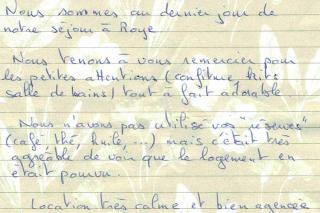 Nous sommes au dernier jour de
notre séjour à Roye.
Nous tenons à vous remercier pour
les petites attentions (confiture, kits
salle de bains) tout à fait adorable.
Nous n'avons pas utilisé vos "réserves"
(café, thé, huile, ...) mais c'était très
agréable de voir que le logement en
était pourvu.
Location très calme et bien agencée